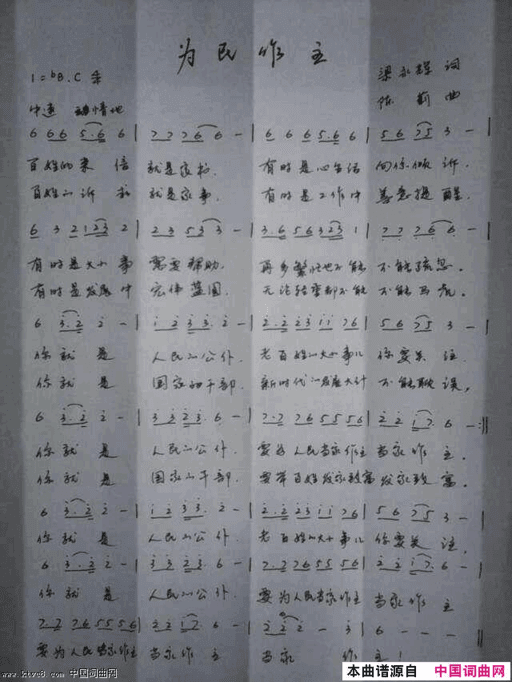 为民作主
1=bB.C 梁永辉 词
中速 动情地 陈莉 曲
6 6 6 5·6 6 | 7 7 7 6 6 - | 6 6 6 5·6 6 | 5 6 7 5 3 - |
百姓的来信 就是家书. 有时是心生活 向你倾诉.
百姓的诉 就是家事. 有时是工作中 善意提醒.
6 3 2 1 2 3 2 | 2 3 5 3 3 - | 3·6 5 6 3 2 3 1 | 7 7 6 6 - |
有时是大小事 需要帮助. 再多繁忙也不能 不能疏忽.
有时是发展中 宏伟蓝图. 无论 都不能 不能
6 3·2 2 - | 1 2 3 3·2 - | 2·2 2 3 1 1 7 6 | 5 6 7 5 3 - |
你就是 人民的公仆. 老百姓的大小事儿 你要关注.
你就是 国家的干部. 新时代的发展大计 不能耽误,
6 3·2 2 - | 3 2 2 3·6 - | 7·7 7 6 5 5 5 6 | 2 2 1 7·6 - :||
你就是 人民的公仆. 要为人民当家作主 当家作主.
你就是 国家的干部. 要带百姓发家致富 发家致富.
6 3·2 2 - | 1 2 3 3·2 - | 2·2 2 3 1 1 7 6 | 5 6 7 5 3 - |
你就是 人民的公仆. 老百姓的大小事儿 你要关注.
6 3·2 2 - | 3 2 2 3·6 - | 7 7 7 6 5 5 5 6 | 2 2 1 7·6 - |
你就是 人民的公仆. 要为人民当家作主 当家作主
7 7 7 6 5 5 5 6 | 2 2 1 7·6 - | 2 2 2 - 3 | 6 - - - ||
要为人民当家作主 当家作主 当家作主!
www.ktvc8.com 中国词曲网
本曲谱源自 中国词曲网